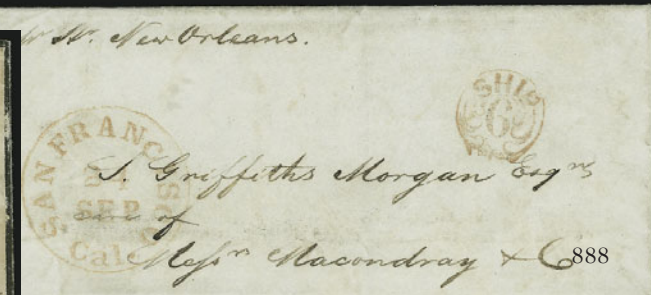 Str. New Orleans.
SHIP
6
SAN FRANCISCO
SEP
Cal.
S. Griffiths Morgan Esqre
care of
Messrs Macondray & Co
888